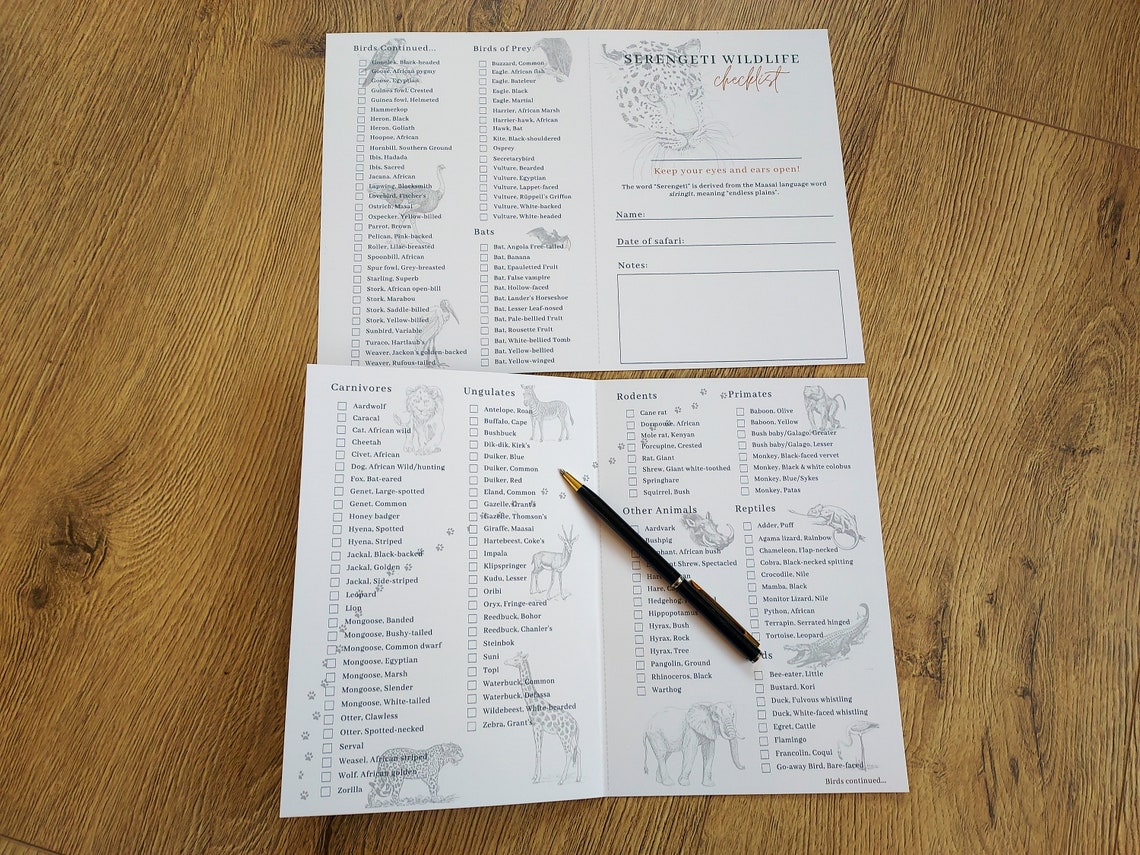 Birds Continued...
Gonolek, Black-headed
Goose, African pygmy
Goose, Egyptian
Guinea fowl, Crested
Guinea fowl, Helmeted
Hammerkop
Heron, Black
Heron, Goliath
Hoopoe, African
Hornbill, Southern Ground
Ibis, Hadada
Ibis, Sacred
Jacana, African
Lapwing, Blacksmith
Lovebird, Fischer's
Ostrich, Masai
Oxpecker, Yellow-billed
Parrot, Brown
Pelican, Pink-backed
Roller, Lilac-breasted
Spoonbill, African
Spur fowl, Grey-breasted
Starling, Superb
Stork, African open-bill
Stork, Marabou
Stork, Saddle-billed
Stork, Yellow-billed
Sunbird, Variable
Turaco, Hartlaub's
Weaver, Jackon's golden-backed
Weaver, Rufous-tailed
Birds of Prey
Buzzard, Common
Eagle, African fish
Eagle, Bateleur
Eagle, Black
Eagle, Martial
Harrier, African Marsh
Harrier-hawk, African
Hawk, Bat
Kite, Black-shouldered
Osprey
Secretarybird
Vulture, Bearded
Vulture, Egyptian
Vulture, Lappet-faced
Vulture, Rüppell's Griffon
Vulture, White-backed
Vulture, White-headed
Bats
Bat, Angola Free-tailed
Bat, Banana
Bat, Epauletted Fruit
Bat, False vampire
Bat, Hollow-faced
Bat, Lander's Horseshoe
Bat, Lesser Leaf-nosed
Bat, Pale-bellied Fruit
Bat, Rousette Fruit
Bat, White-bellied Tomb
Bat, Yellow-bellied
Bat, Yellow-winged
SERENGETI WILDLIFE
checklist
Keep your eyes and ears open!
The word "Serengeti" is derived from the Maasai language word
siringit, meaning "endless plains".
Name:
Date of safari:
Notes:
Carnivores
Aardwolf
Caracal
Cat, African wild
Cheetah
Civet, African
Dog, African Wild/hunting
Fox, Bat-eared
Genet, Large-spotted
Genet, Common
Honey badger
Hyena, Spotted
Hyena, Striped
Jackal, Black-backed
Jackal, Golden
Jackal, Side-striped
Leopard
Lion
Mongoose, Banded
Mongoose, Bushy-tailed
Mongoose, Common dwarf
Mongoose, Egyptian
Mongoose, Marsh
Mongoose, Slender
Mongoose, White-tailed
Otter, Clawless
Otter, Spotted-necked
Serval
Weasel, African striped
Wolf, African golden
Zorilla
Ungulates
Antelope, Roan
Buffalo, Cape
Bushbuck
Dik-dik, Kirk's
Duiker, Blue
Duiker, Common
Duiker, Red
Eland, Common
Gazelle, Grant's
Gazelle, Thomson's
Giraffe, Maasai
Hartebeest, Coke's
Impala
Klipspringer
Kudu, Lesser
Oribi
Oryx, Fringe-eared
Reedbuck, Bohor
Reedbuck, Chanler's
Steinbok
Suni
Topi
Waterbuck, Common
Waterbuck, Defassa
Wildebeest, White-bearded
Zebra, Grant's
Rodents
Cane rat
Dormouse, African
Mole rat, Kenyan
Porcupine, Crested
Rat, Giant
Shrew, Giant white-toothed
Springhare
Squirrel, Bush
Other Animals
Aardvark
Bushpig
African bush
Shrew, Spectacled
Hare,
Hedgehog,
Hippopotamus
Hyrax, Bush
Hyrax, Rock
Hyrax, Tree
Pangolin, Ground
Rhinoceros, Black
Warthog
Primates
Baboon, Olive
Baboon, Yellow
Bush baby/Galago, Greater
Bush baby/Galago, Lesser
Monkey, Black-faced vervet
Monkey, Black & white colobus
Monkey, Blue/Sykes
Monkey, Patas
Reptiles
Adder, Puff
Agama lizard, Rainbow
Chameleon, Flap-necked
Cobra, Black-necked spitting
Crocodile, Nile
Mamba, Black
Monitor Lizard, Nile
Python, African
Terrapin, Serrated hinged
Tortoise, Leopard
Bee-eater, Little
Bustard, Kori
Duck, Fulvous whistling
Duck, White-faced whistling
Egret, Cattle
Flamingo
Francolin, Coqui
Go-away Bird, Bare-faced
Birds continued...